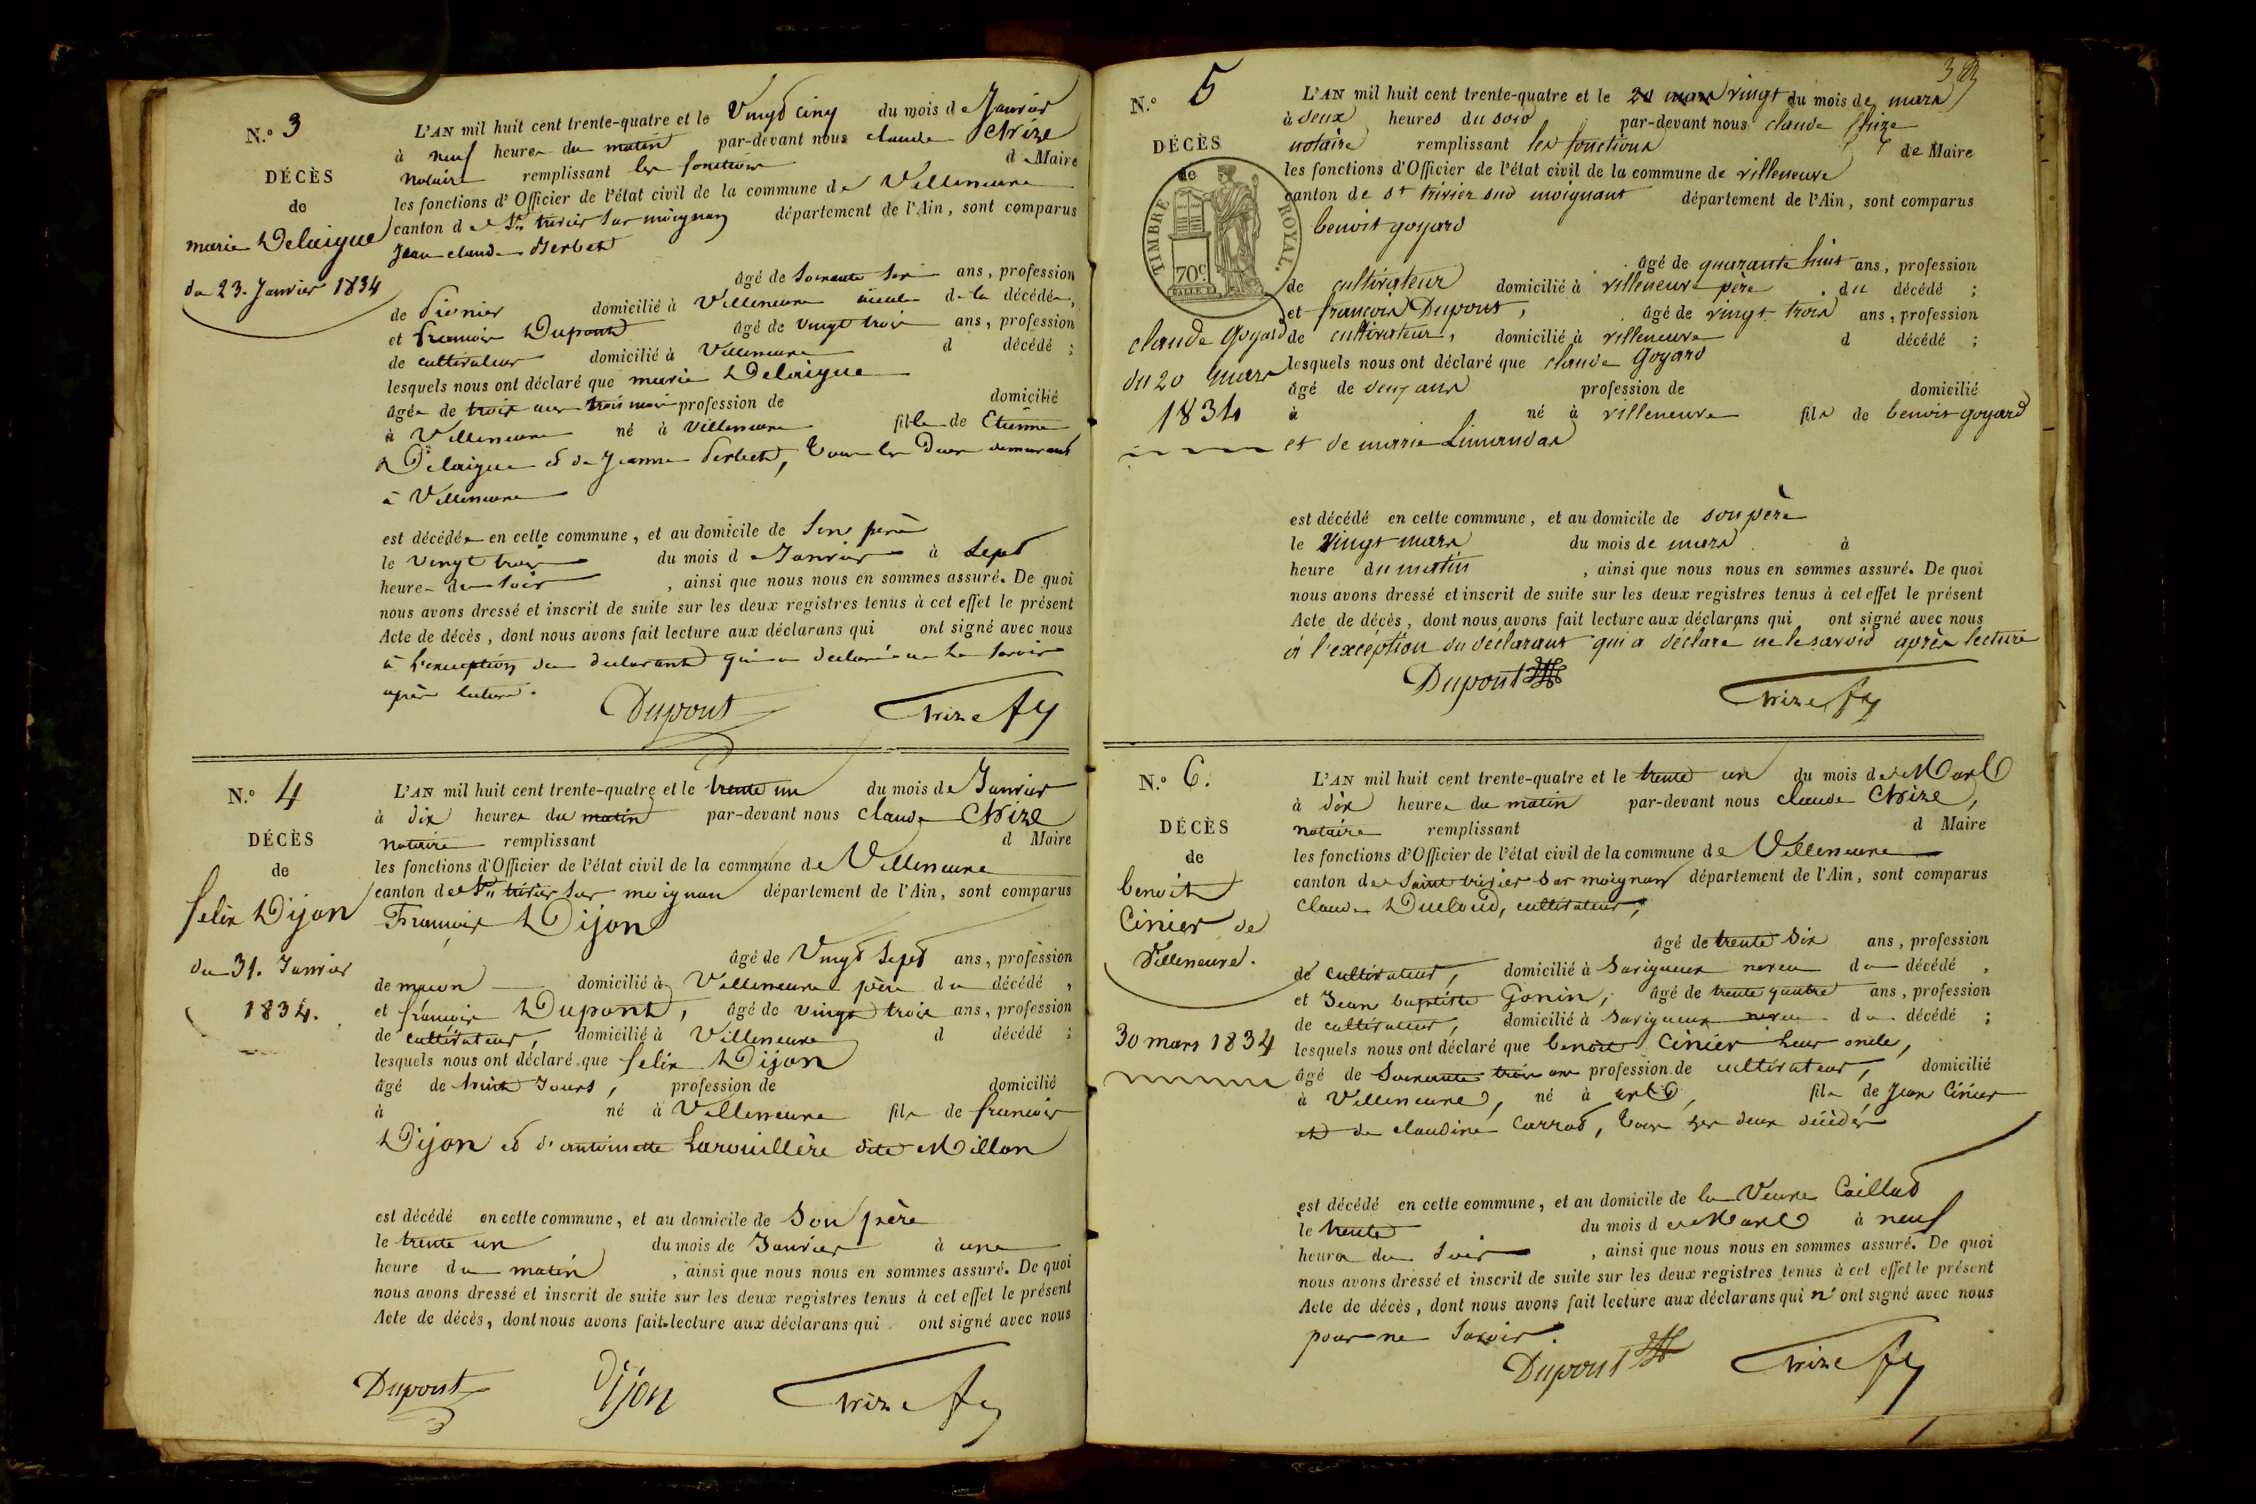 N.° 3
DÉCÈS
de
marie Delaigue
du 23. Janvier 1834
L'AN mil huit cent trente-quatre et le Vingt cinq du mois de Janvier
à neuf heures du matin par-devant nous claude
notaire remplissant les fonctions d Maire
les fonctions d'Officier de l'état civil de la commune de Villeneuve
canton de St trivier sur moignan département de l'Ain, sont comparus
Jean claude Berbet
âgé de Soixante ans, profession
de domicilié à Villeneuve aieul de la décédée,
et francois Dupont âgé de vingt trois ans, profession
de cultivateur domicilié à Villeneuve d décédé ;
lesquels nous ont déclaré que marie Delaigue
âgée de trois ans trois mois profession de domicilié
à Villeneuve né à Villeneuve fille de Etienne
Delaigue et de Jeanne Berbet, tous les Deux demeurant
à Villeneuve
est décédée en cette commune, et au domicile de Son père
le vingt trois du mois de Janvier à Sept
heures du Soir , ainsi que nous nous en sommes assuré. De quoi
nous avons dressé et inscrit de suite sur les deux registres tenus à cet effet le présent
Acte de décès, dont nous avons fait lecture aux déclarans qui ont signé avec nous
à l'exception du declarant qui a declaré ne le Savoir
après lecture.
Dupont
N.° 4
DÉCÈS
de
felix Dijon
du 31. Janvier
1834.
L'AN mil huit cent trente-quatre et le trente un du mois de Janvier
à dix heures du matin par-devant nous Claude
notaire remplissant d Maire
les fonctions d'Officier de l'état civil de la commune de Villeneuve
canton de St trivier sur moignan département de l'Ain, sont comparus
François Dijon
âgé de Vingt Sept ans, profession
de macon domicilié à Villeneuve père du décédé ,
et françois Dupont, âgé de vingt trois ans, profession
de cultivateur, domicilié à Villeneuve d décédé ;
lesquels nous ont déclaré que felix Dijon
âgé de huit Jours, profession de domicilié
à né à Villeneuve fils de francois
Dijon et d'antoinette Larouillère dite Millon
est décédé en cette commune, et au domicile de Son père
le trente un du mois de Janvier à une
heure du matin , ainsi que nous nous en sommes assuré. De quoi
nous avons dressé et inscrit de suite sur les deux registres tenus à cet effet le présent
Acte de décès, dont nous avons fait lecture aux déclarans qui ont signé avec nous
Dupont Dijon
N.° 5
DÉCÈS
de
TIMBRE ROYAL.
70c
claude Goyard
du 20 mars
1834
L'AN mil huit cent trente-quatre et le vingt du mois de mars
à deux heures du soir par-devant nous claude
notaire remplissant les fonctions de Maire
les fonctions d'Officier de l'état civil de la commune de villeneuve
canton de St trivier sur moignant département de l'Ain, sont comparus
benoit goyard
âgé de quarante huit ans, profession
de cultivateur domicilié à villeneuve père du décédé ;
et françois Dupont, âgé de vingt trois ans, profession
de cultivateur, domicilié à villeneuve d décédé ;
lesquels nous ont déclaré que claude Goyard
âgé de deux ans profession de domicilié
à né à villeneuve fils de benoit goyard
et de marie Limandas
est décédé en cette commune, et au domicile de son père
le vingt mars du mois de mars à
heure du matin , ainsi que nous nous en sommes assuré. De quoi
nous avons dressé et inscrit de suite sur les deux registres tenus à cet effet le présent
Acte de décès, dont nous avons fait lecture aux déclarans qui ont signé avec nous
à l'exception du déclarant qui a déclaré ne le savoir après lecture
Dupont
N.° 6.
DÉCÈS
de
benoit
Cinier de
Villeneuve.
30 mars 1834
L'AN mil huit cent trente-quatre et le trente un du mois de Mars
à dix heures du matin par-devant nous claude
notaire remplissant d Maire
les fonctions d'Officier de l'état civil de la commune de Villeneuve
canton de Saint trivier sur moignan département de l'Ain, sont comparus
Claude Ducloud, cultivateur,
âgé de trente Six ans, profession
de cultivateur, domicilié à Savigneux neveu du décédé ,
et Jean baptiste Gonin, âgé de trente quatre ans, profession
de cultivateur, domicilié à Savigneux neveu du décédé ;
lesquels nous ont déclaré que benoit Cinier leur oncle,
âgé de Soixante trois ans profession de cultivateur, domicilié
à Villeneuve, né à ars, fils de Jean Cinier
et de claudine Carrod, tous les deux décédés
est décédé en cette commune, et au domicile de la Veuve Caillad
le trente du mois de Mars à neuf
heures du Soir , ainsi que nous nous en sommes assuré. De quoi
nous avons dressé et inscrit de suite sur les deux registres tenus à cet effet le présent
Acte de décès, dont nous avons fait lecture aux déclarans qui n'ont signé avec nous
pour ne Savoir.
Dupont